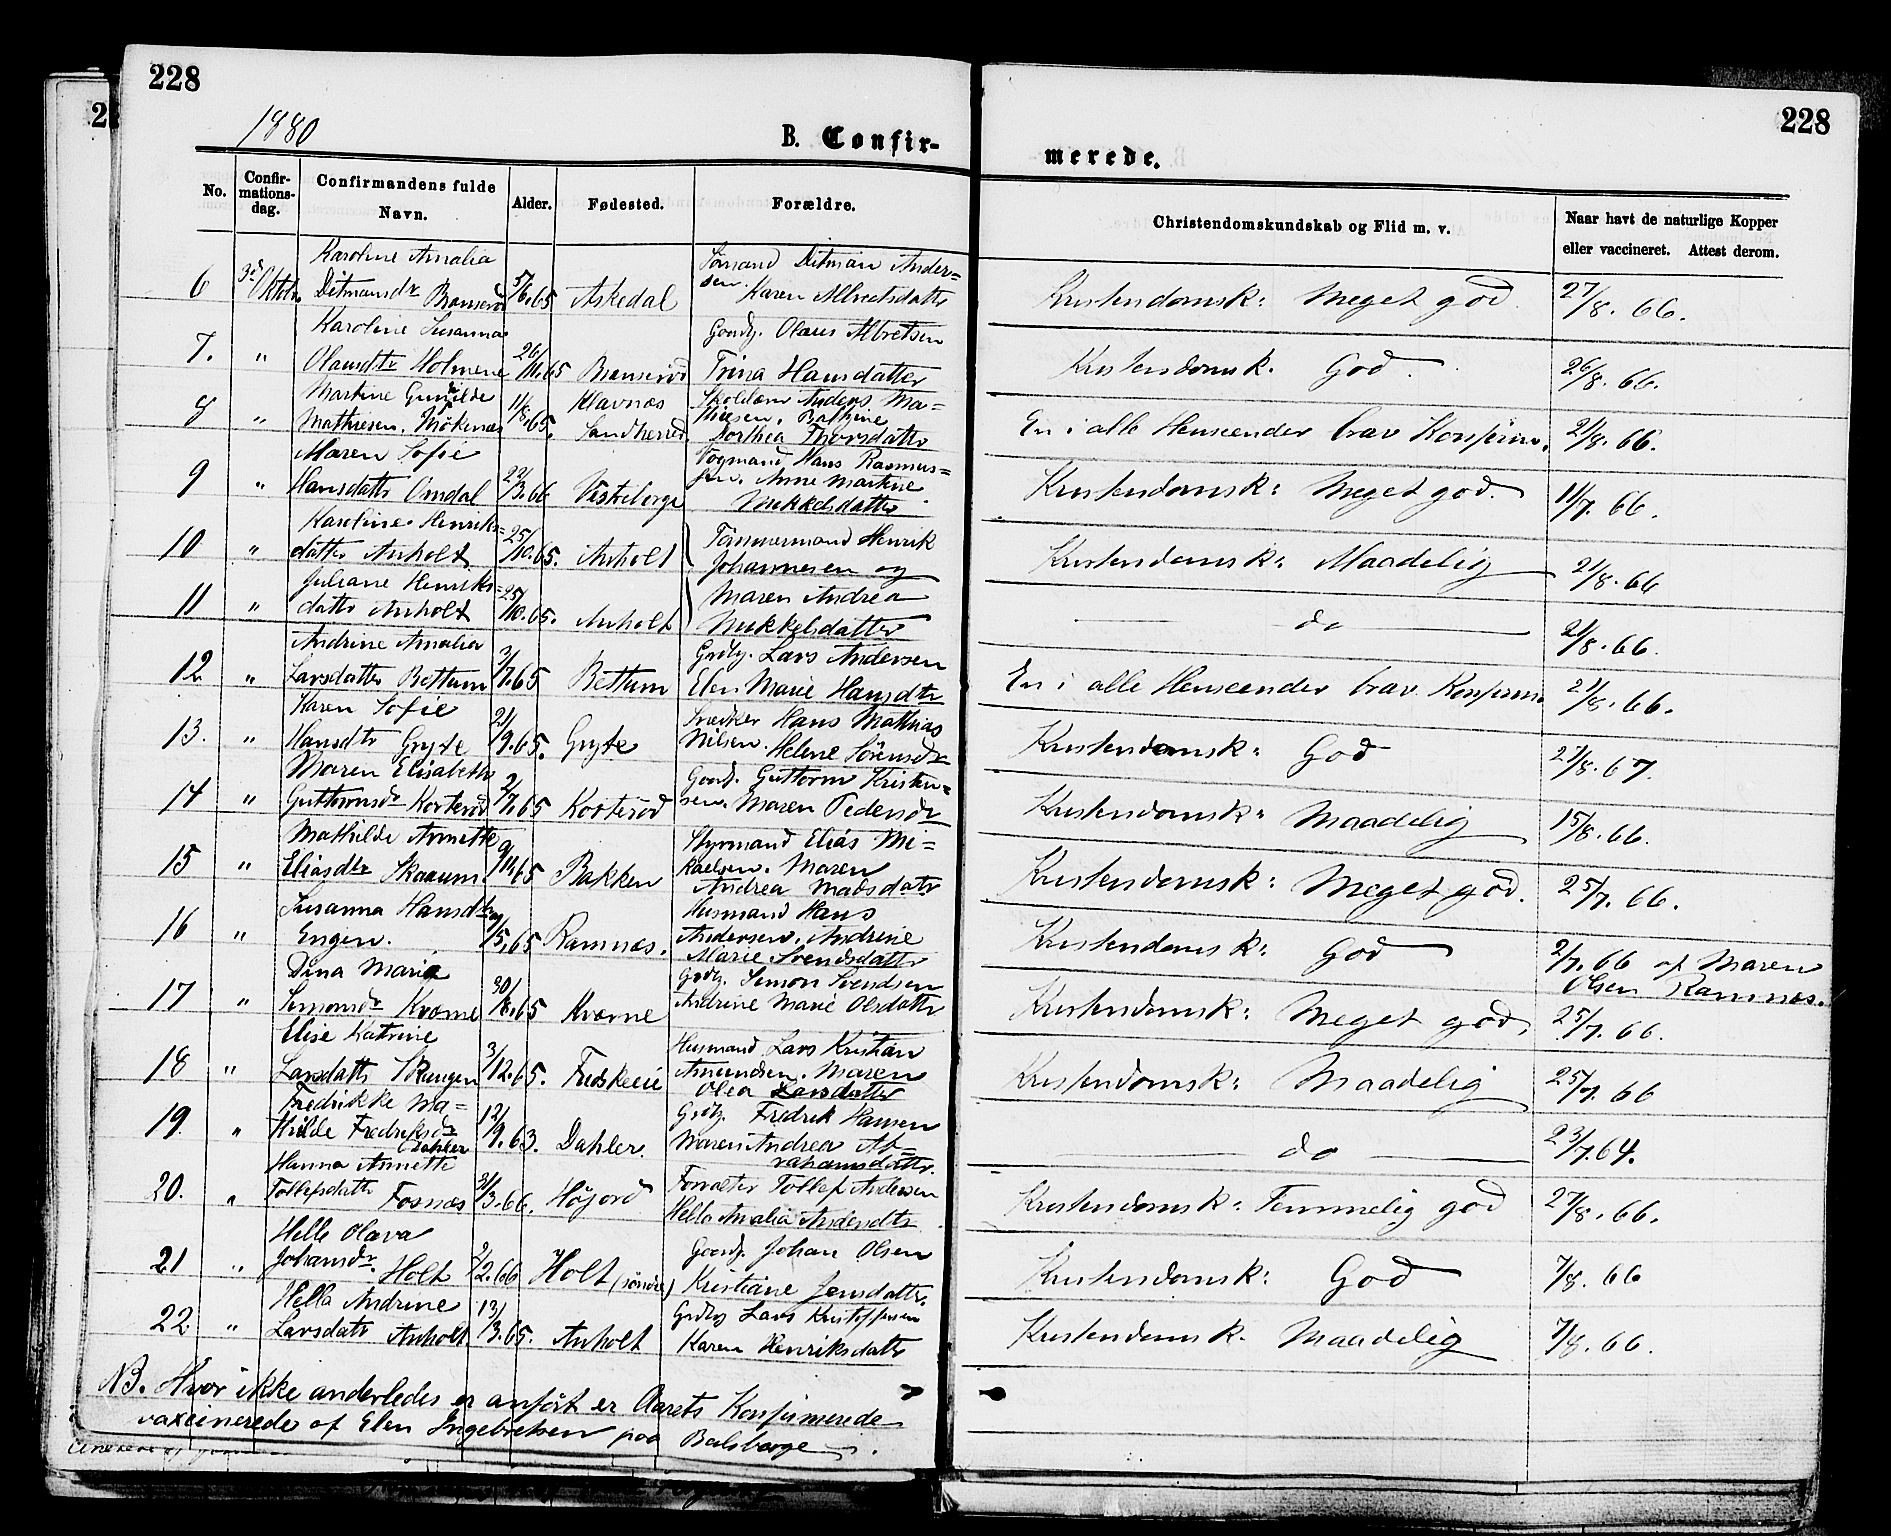 228
228
2
1880
B. Confir-
merede.
No.
Confir-
mations-
dag.
Confirmandens fulde
Navn.
Alder.
Fødested.
Forældre.
Christendomskundskab og Flid m. v.
Naar havt de naturlige Kopper
eller vaccineret. Attest derom.
Karoline Amalia
Sømand Ditman Ander=
6 3d Oktbr Ditmansdr 5/6.65 Askedal sen. Karen Albretsdattr Kristendomsk: Meget god 27/8.66.
Karoline Susanna
Gaardbr. Olaus Albretsen
7. " Olausdtr Holmene 26/11.65 Trina Hansdatter Kristendomsk. God. 26/8.66.
Martine Gunilde
11/8.65. Klavnæs
Skolelærer Anders Ma=
8 " Mathiesen. Sandherred thiesen. Bathine
Dorthea Thorsdattr
En i alle Henseender brav Konfirm. 21/8.66.
Maren Sofie
Hans Rasmus=
9 " Hansdattr Omdal 22/3.66 sen. Anne Martine
Mikkelsdatter
Kristendomsk: Meget god. 11/7.66.
Karoline Henriks=
Tømmermand Henrik
10 " datter Anholt 25/10.65. Anholt Johannesen og Kristendomsk: Maadelig 21/8.66
Juliane Henriks=
Maren Andrea
11 " datter Anholt 25/10.65. Anholt Mikkelsdatter do 21/8.66.
Andrine Amalia
Grdbr. Lars Andersen
12 " Larsdatter Bettum 3/7.65 Bettum Elen Marie Hansdtr En i alle Henseender brav Konfirm. 21/8.66.
Karen Sofie
Snedker Hans Mathias
13. " Hansdtr Gryte 21/9.65. Gryte Nilsen. Helene Sørensdr Kristendomsk: God 27/8.67.
Maren Elisabeth
Gaardbr. Guttorm Kristen=
14 " Guttormsdr Korterød 2/7.65 Korterød sen. Maren Pedersdr Kristendomsk: Maadelig 15/8.66.
Mathilde Annette
Styrmand Elias Mi=
15 " Eliasdtr Skaaum. 9/10.65 Bakken kaelsen. Maren
Andrea Madsdatr
Kristendomsk: Meget god. 25/7.66.
Susanna Hansdtr
Husmand Hans
16 " Engen. Ramnæs. Andersen. Andrine
Marie Svendsdattr
Kristendomsk: God 2/7.66 af Maren
Olsen Ramnæs.
Dina Maria
Grdbr. Simon Svendsen
17 " Simonsdr Kværne 30/8.65 Kværne Andrine Marie Olsdattr Kristendomsk: Meget god. 25/7.66.
Elise Katrine
Husmand Lars Kristian
18 " Larsdattr 3/12.65. Amundsen. Maren
Olea Larsdatter
Kristendomsk: Maadelig 25/7.66
Fredrikke Ma=
Grdbr. Fredrik Hansen
19. " thilde Fredriksdr 12/9.63. Dahler. Maren Andrea Ab=
(Dahler rahamsdattr.
do 23/7.64.
Hanna Annette
Forvalter Tollef Andersen
20. " Tollefsdattr Fosnæs 31/3.66. Høijord Hella Amalia Andersdtr Kristendomsk: Temmelig god 27/8.66.
Helle Olava
Gaardbr. Johan Olsen
21 " Johansdr. Holt 2/2.66 Holt (søndre) Kristiane Jensdatter. Kristendomsk: God 7/8.66
Hella Andrine
Grdbrg Lars Kristoffersen
22 " Larsdattr Anholt 13/13.65. Anholt Karen Henriksdattr Kristendomsk. Maadelig 7/8.66.
NB. Hvor ikke anderledes er anført er Aarets Konfirmerede
vaxcinerede af Elen Ingebretsen paa